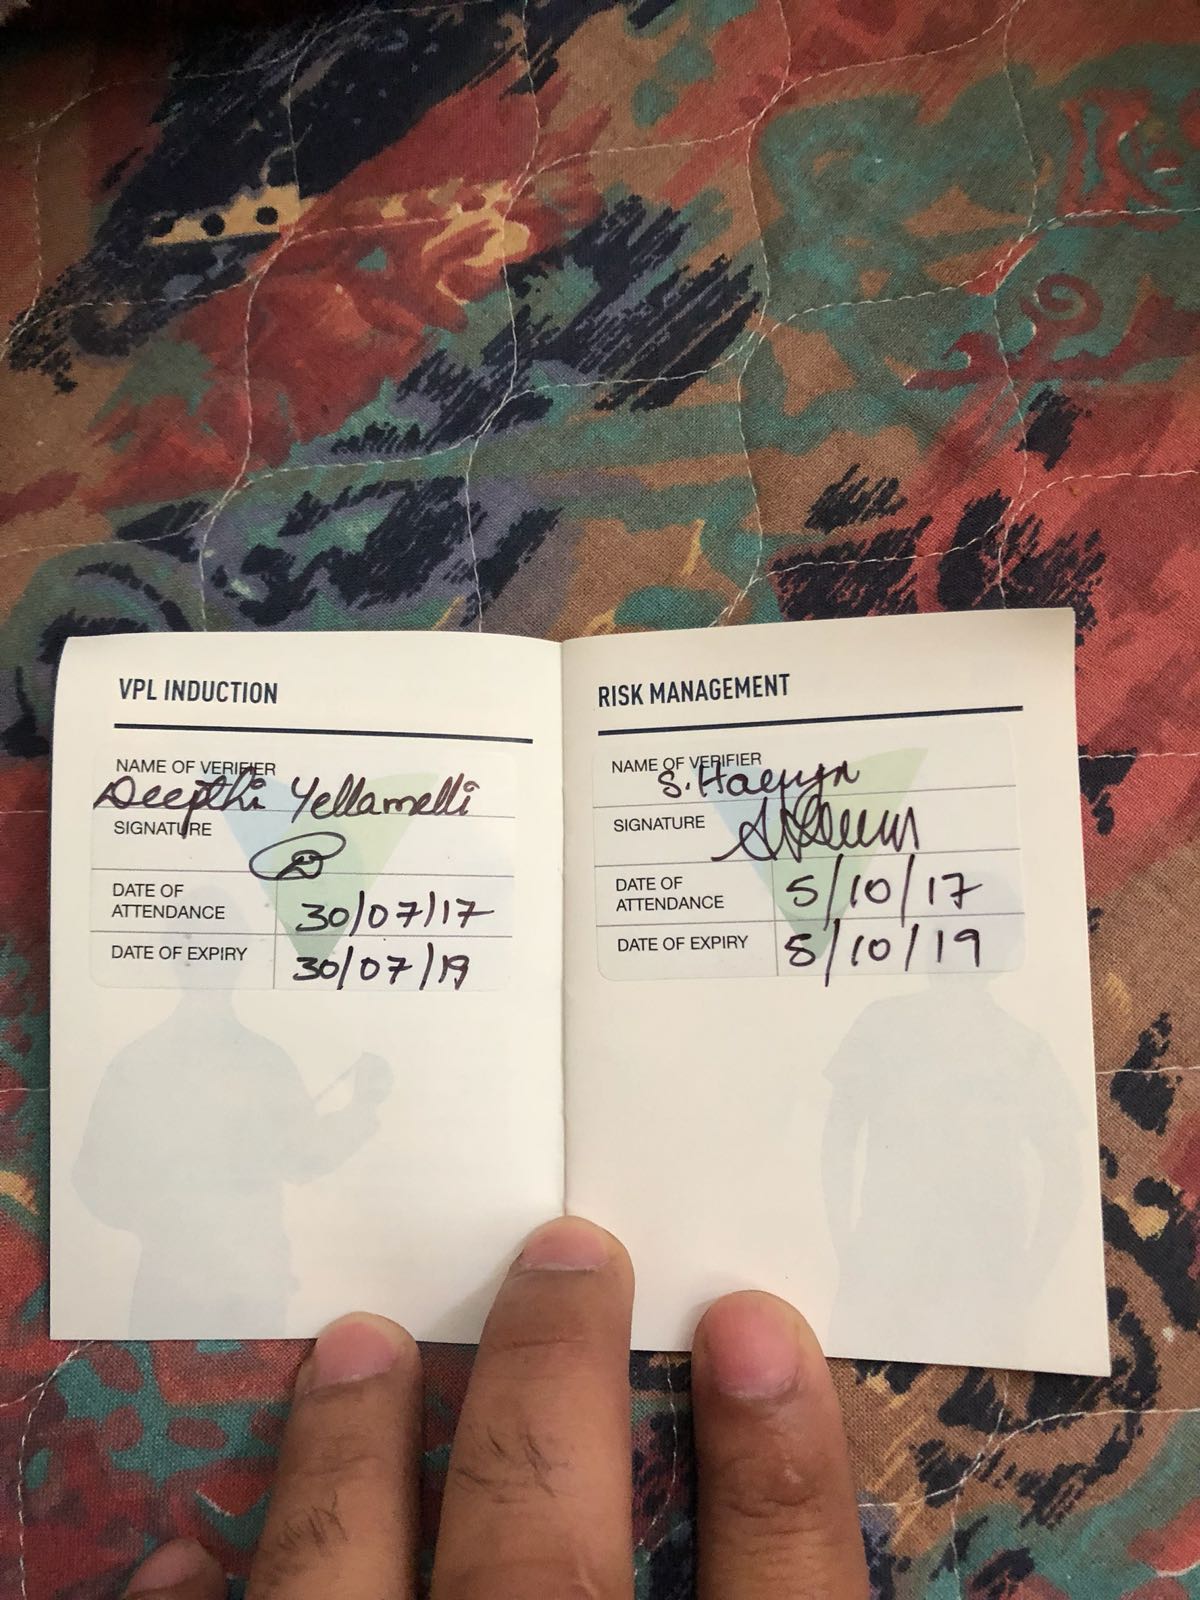 VPL INDUCTION
NAME OF VERIFIER
Deepthi Yellamelli
SIGNATURE
DATE OF
ATTENDANCE
30/07/17
DATE OF EXPIRY
30/07/19
RISK MANAGEMENT
NAME OF VERIFIER
S.
SIGNATURE
DATE OF
ATTENDANCE
5/10/17
DATE OF EXPIRY
5/10/19